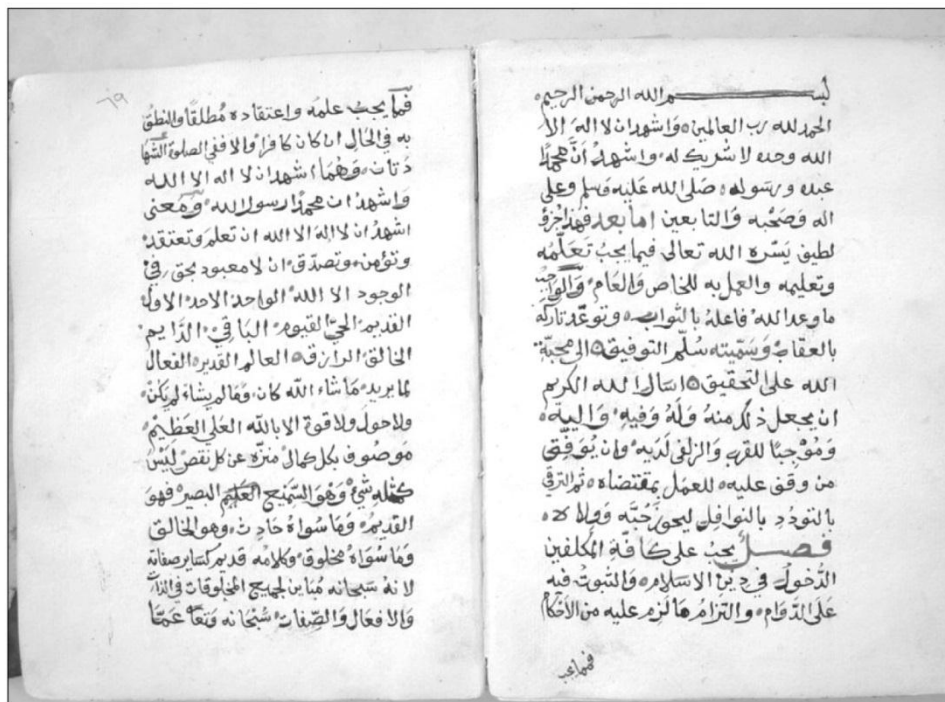 بسم الله الرحمن الرحيم
الحمد لله رب العالمين واشهد ان لا اله الا
الله وحده لا شريك له واشهد أنّ محمدًا
عبده ورسوله صلى الله عليه وسلم وعلى
اله وصحبه والتابعين اما بعد فهذا جزؤ
لطيف يسّره الله تعالى فيما يجب تعلّمه
وتعليمه والعمل به للخاص والعام والواجب
ما وعد الله فاعله بالثواب وتوعّد تاركه
بالعقاب وسمّيته سُلّم التوفيق الى محبّة
الله على التحقيق اسأل الله الكريم
ان يجعل ذلك منه وله وفيه واليه
ومُوْجبًا للقرب والزلفى لديه وان يُوَفّق
من وقف عليه للعمل بمقتضاه ثم الترقي
بالتودد بالنوافل ليحوز حُبّه وولاه
فصل يجب على كافّة المكلفين
الدّخول في دين الاسلام والثبوت فيه
على الدّوام والتزام ما لزم عليه من الأحكام
فمما يجب
٦٩
فمّما يجب علمه واعتقاده مُطلقًا والنطق
به في الحال ان كان كافرا والا ففي الصلوة الشها
دتان وهُما اشهد ان لا اله الا الله
واشهد ان محمدًا رسول الله ومعنى
اشهد ان لا اله الا الله ان تعلم وتعتقد
وتؤمن وتصدّق ان لا معبود بحق في
الوجود الا الله الواحد الاحد الاول
القديم الحيّ القيوم الباقي الدّايم
الخالق الرازق العالم القدير الفعال
لما يريد ما شاء الله كان وما لم يشاء لم يكن
ولا حول ولا قوة الا بالله العلي العظيم
موصوف بكل كمال منزّه عن كل نقص ليس
كمثله شيْء وهو السّميع العليم البصير فهو
القديم وما سواه حادث وهو الخالق
وما سواه مخلوق وكلامه قديم كساير صفاته
لانه سبحانه مُباين لجميع المخلوقات في الذات
والافعال والصّفات سُبحانه وتعا عمّا